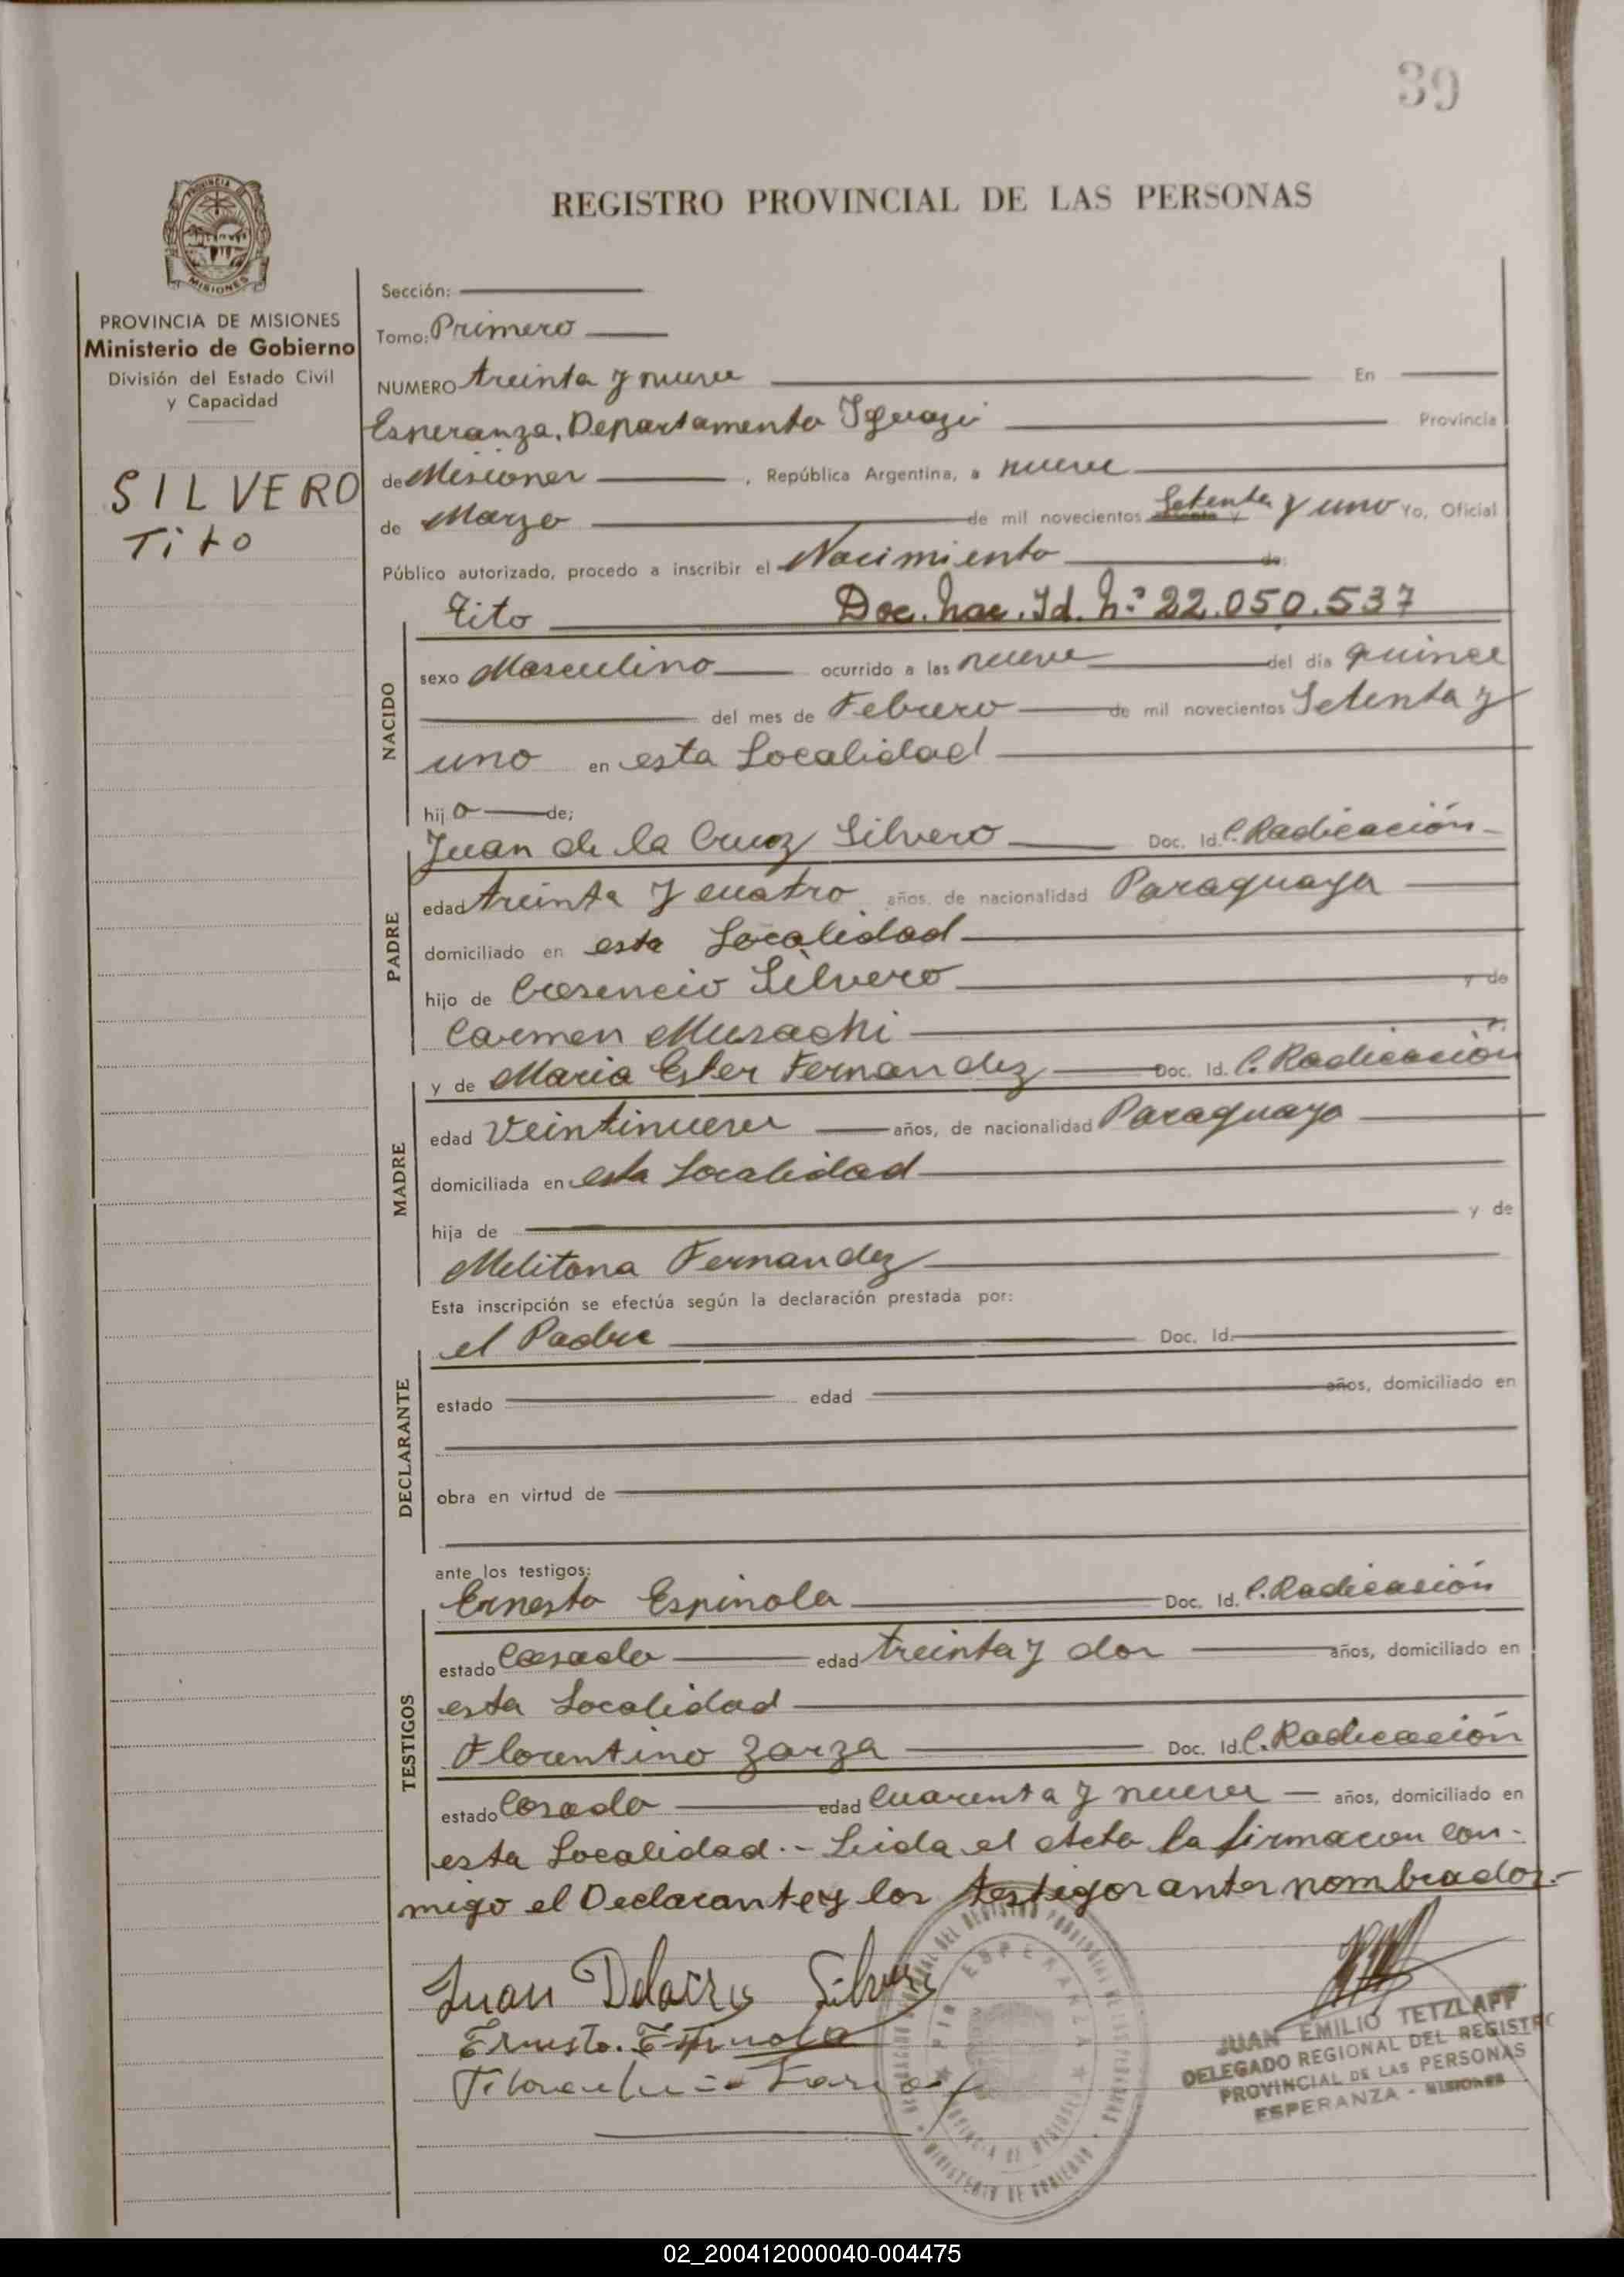 39
REGISTRO PROVINCIAL DE LAS PERSONAS
PROVINCIA DE MISIONES
Ministerio de Gobierno
División del Estado Civil
y Capacidad
SILVERO
Tito
Sección:
Tomo: Primero
NUMERO treinta y nueve En
Esperanza, Departamento Iguazú Provincia
de Misiones , República Argentina, a nueve
de Marzo de mil novecientos Setenta y uno Yo, Oficial
Público autorizado, procedo a inscribir el Nacimiento de:
Tito Doc. Nac. Id. N° 22.050.537
NACIDO
sexo Masculino ocurrido a las nueve del día quince
del mes de Febrero de mil novecientos Setenta y
uno en esta Localidad
hij o de;
PADRE
Juan de la Cruz Silvero Doc. Id. C. Radicación
edad treinta y cuatro años, de nacionalidad Paraguaya
domiciliado en esta Localidad
hijo de Silvero y de
Carmen
MADRE
y de Maria Ester Fernandez Doc. Id. C. Radicación
edad Veintinueve años, de nacionalidad Paraguaya
domiciliada en esta Localidad
hija de y de
Melitona Fernandez
Esta inscripción se efectúa según la declaración prestada por:
DECLARANTE
el Padre Doc. Id.
estado edad años, domiciliado en
obra en virtud de
ante los testigos:
TESTIGOS
Ernesto Espinola Doc. Id. C. Radicación
estado Casado edad treinta y dos años, domiciliado en
esta Localidad
Florentino Zarza Doc. Id. C. Radicación
estado Casado edad Cuarenta y nueve años, domiciliado en
esta Localidad.- Leida el Acta la firmaron con-
migo el Declarante y los testigos antes nombrados.-
Juan Silvero
Ernesto. Espinola
JUAN EMILIO TETZLAFF
DELEGADO REGIONAL DEL REGISTRO
PROVINCIAL DE LAS PERSONAS
ESPERANZA - MISIONES
02_200412000040-004475